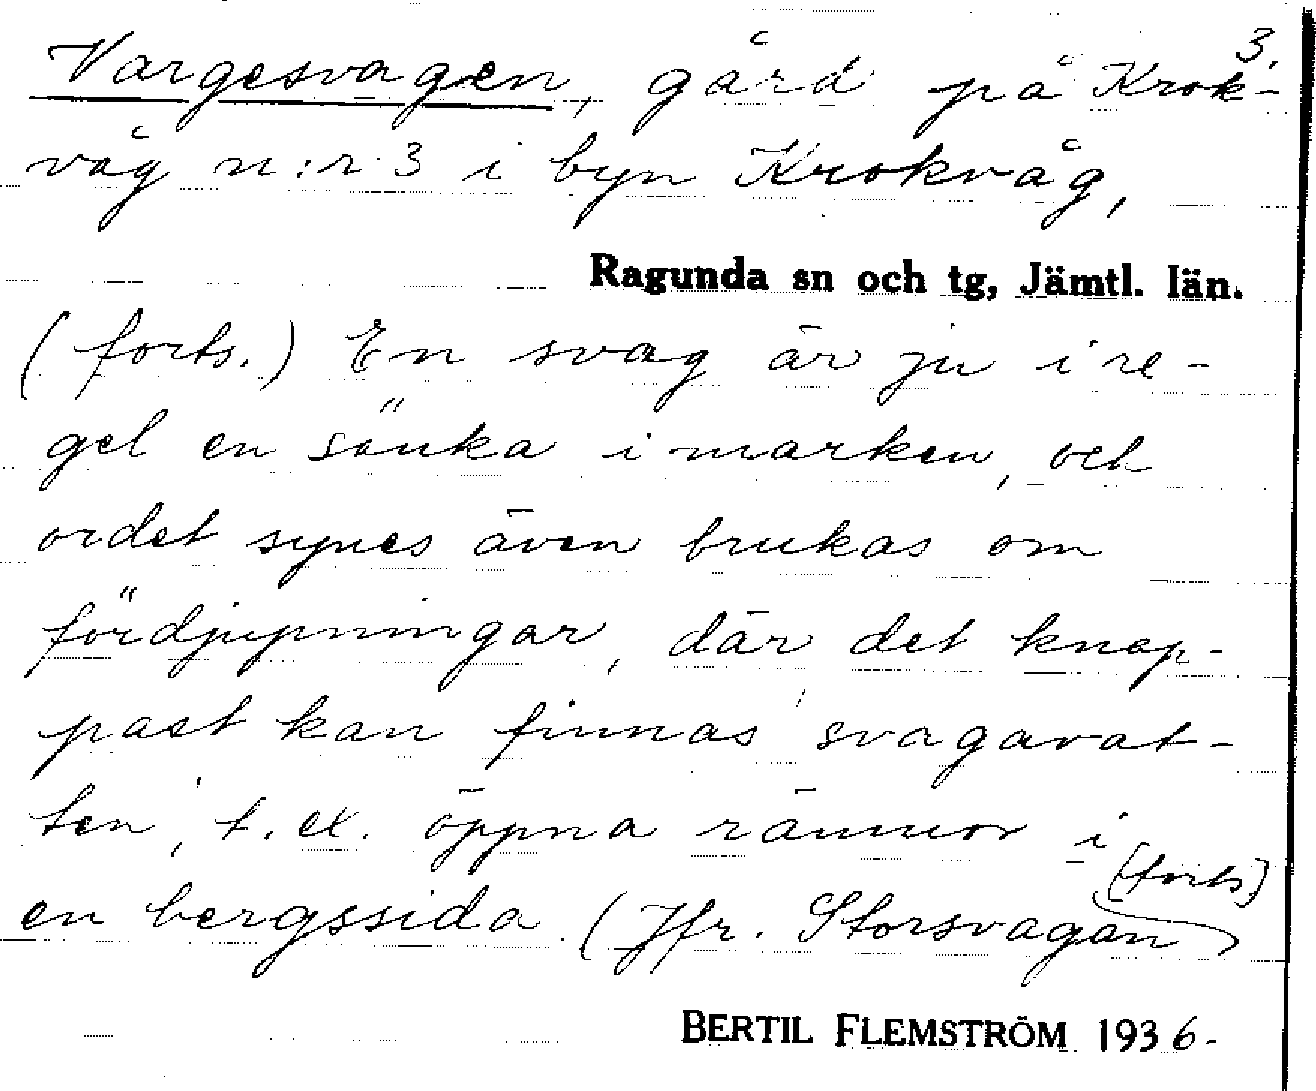 3.
Vargesvagen, gård på Krok-
våg n:r 3 i byn Krokvåg,
Ragunda sn och tg, Jämtl. län.
(forts.) En svag är ju i re-
gel en sänka i marken, och
ordet synes även brukas om
fördjupningar, där det knap-
past kan finnas svagavat-
ten, t.ex. öppna rännor i
en bergssida. (Jfr. Storsvagan)
(forts)
BERTIL FLEMSTRÖM 1936.